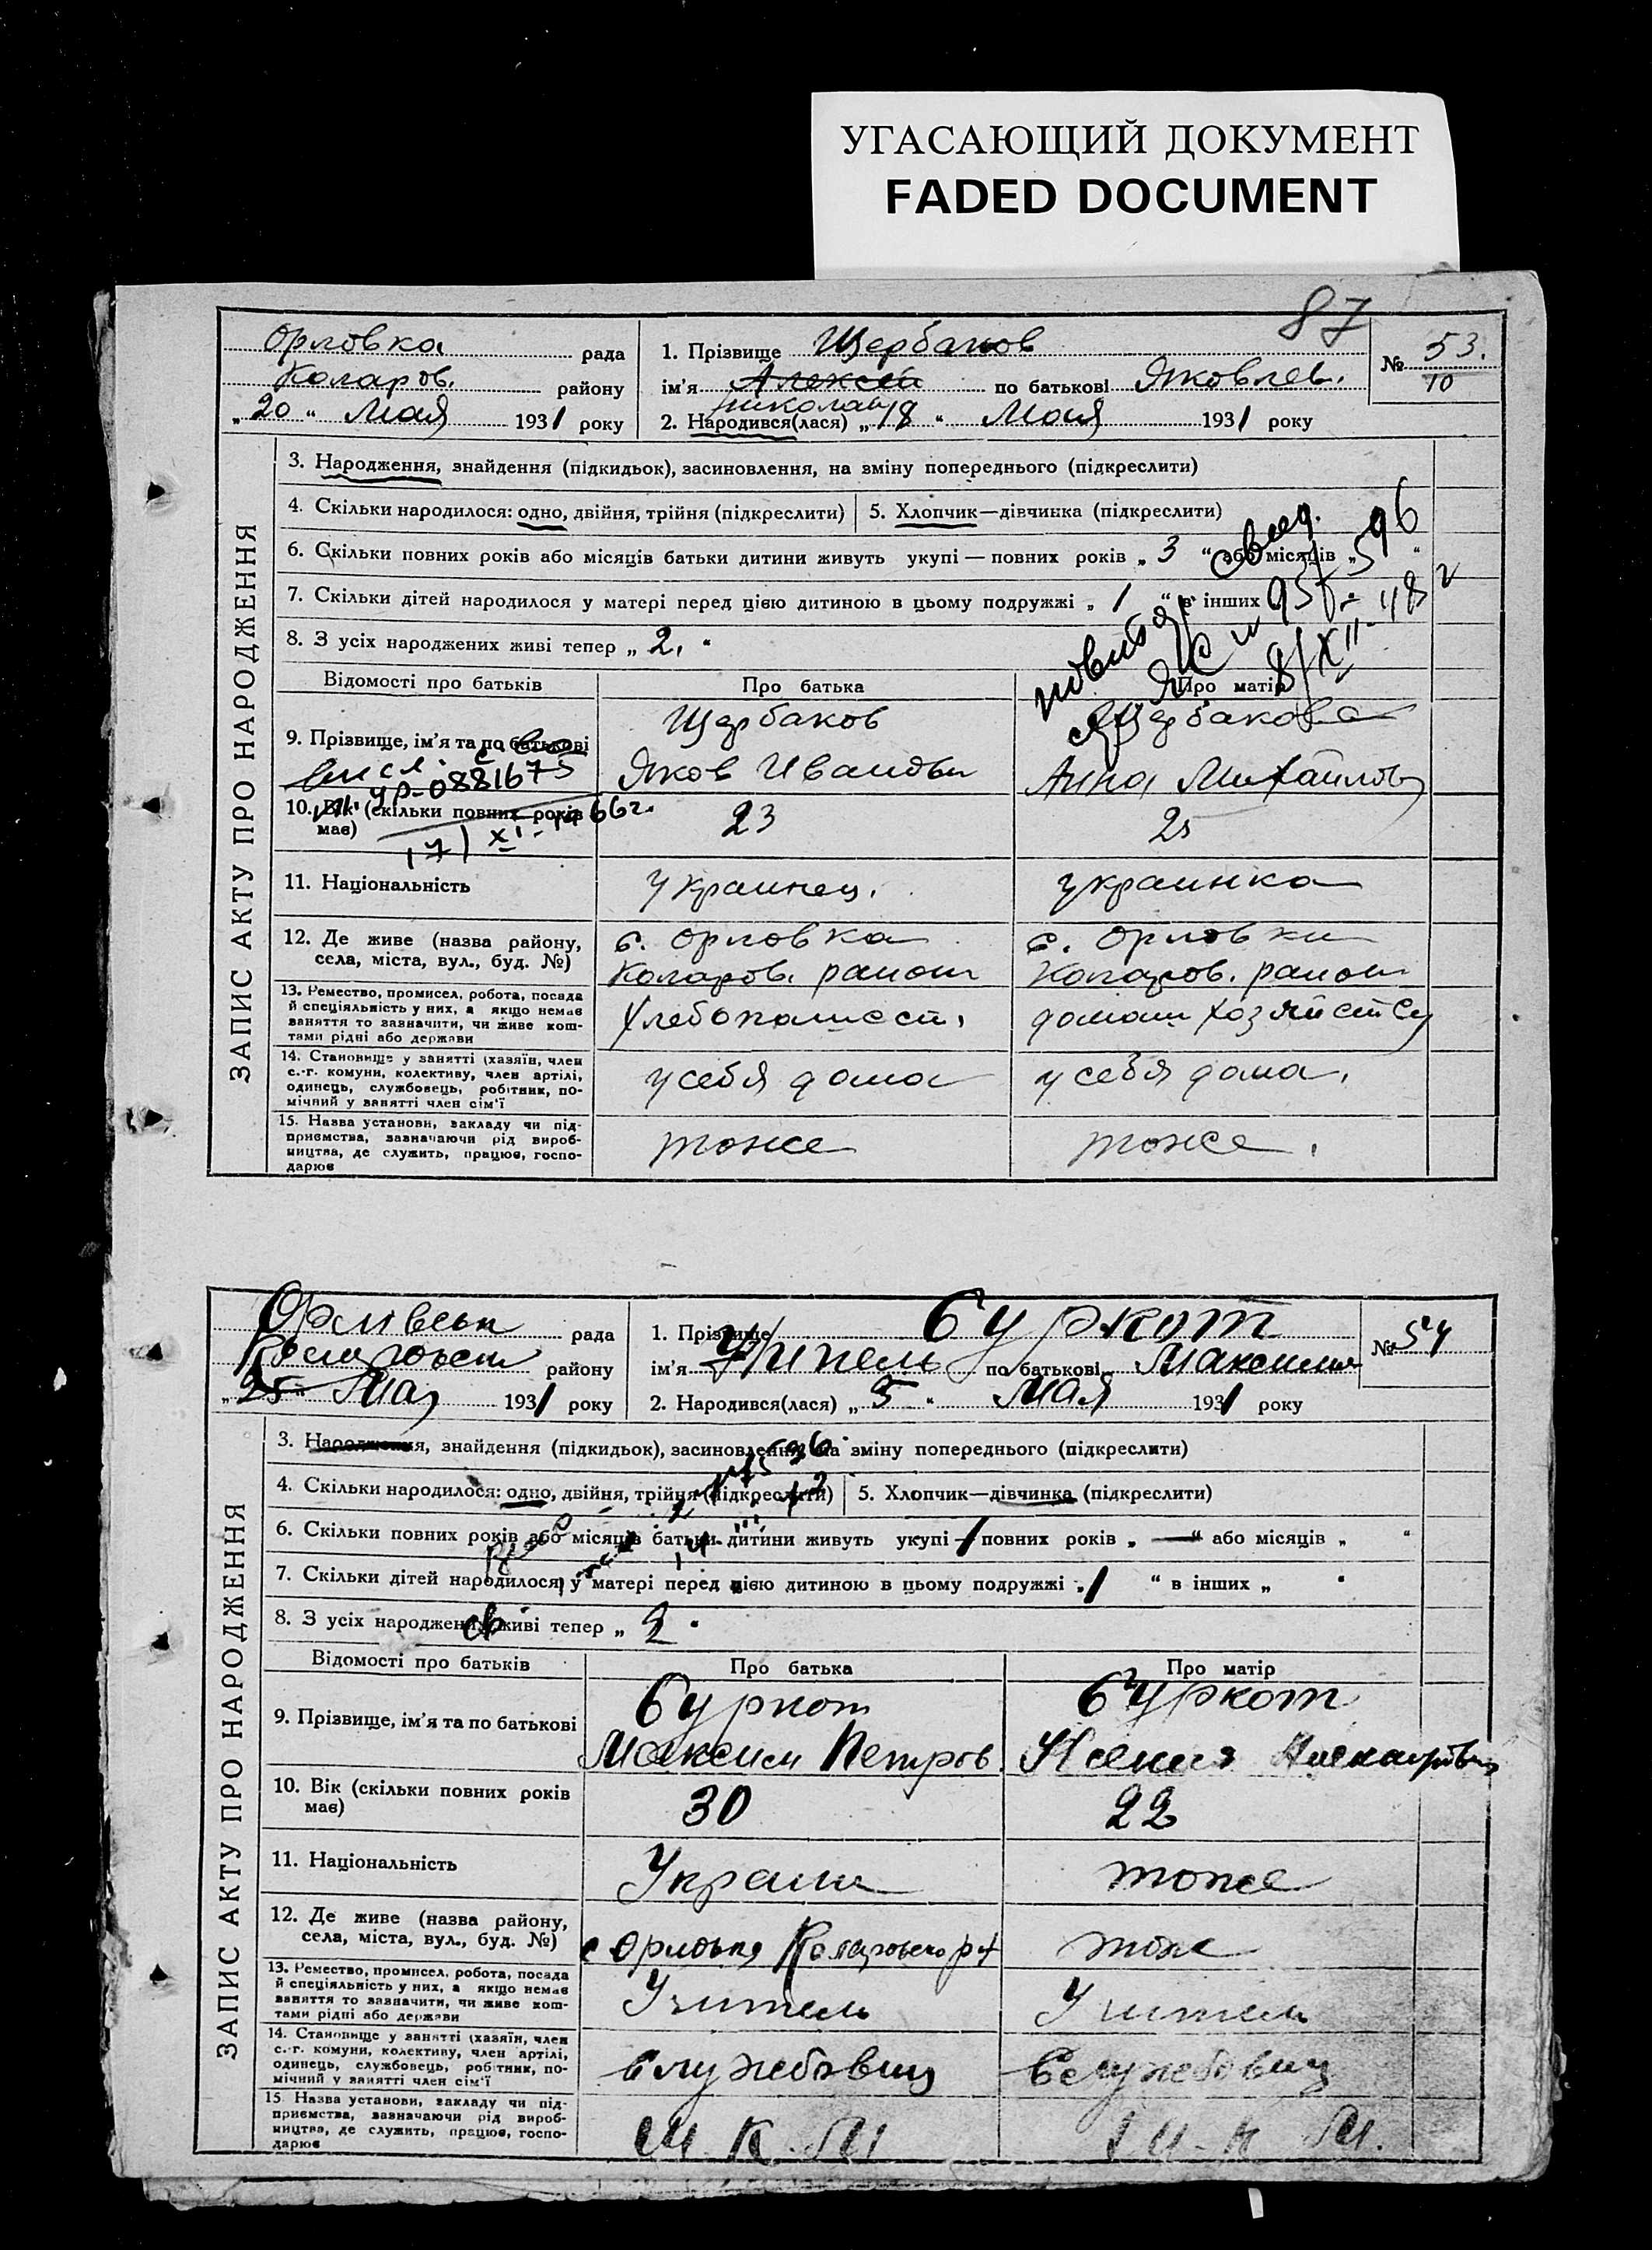 УГАСАЮЩИЙ ДОКУМЕНТ
FADED DOCUMENT
87
Орловка рада
Коларов. району
„ 20 “ Мая 1931 року
1. Прізвище Щербаков
ім’я Алексей по батькові Яковлев.
Николай
2. Народився(лася) „ 18 “ Мая 1931 року
№ 53.
10
ЗАПИС АКТУ ПРО НАРОДЖЕННЯ
3. Народження, знайдення (підкидьок), засиновлення, на зміну попереднього (підкреслити)
4. Скільки народилося: одно, двійня, трійня (підкреслити)
5. Хлопчик—дівчинка (підкреслити)
6. Скільки повних років або місяців батьки дитини живуть укупі — повних років „ 3 “ або місяців „ “
7. Скільки дітей народилося у матері перед цією дитиною в цьому подружжі „ 1 “ в інших
8. З усіх народжених живі тепер „ 2. “
Відомості про батьків
Про батька
Про матір
9. Прізвище, ім’я та по батькові
Щербаков
Яков Иванови
Щербакова
Анна Михайлов
УР-0881675
17/XI-1966г.
10. Вік (скільки повних років має)
23
25
11. Національність
украинец.
украинка
12. Де живе (назва району, села, міста, вул., буд. №)
с. Орловка
Коларов. район
с. Орловки
Коларов. район
13. Ремество, промисел, робота, посада й спеціяльність у них, а якщо немає заняття то зазначити, чи живе коштами рідні або держави
Хлебопашест.
домаш хозяйство
14. Становище у занятті (хазяїн, член с.-г. комуни, колективу, член артілі, одинець, службовець, робітник, помічний у занятті член сім’ї
у себя дома
у себя дома.
15. Назва установи, закладу чи підприємства, зазначаючи рід виробництва, де служить, працює, господарює
тоже
тоже.
Орлівськ рада
району
„ 25 “ Мая 1931 року
1. Прізвище Буркот
ім’я по батькові Максимов
2. Народився(лася) „ 5 “ Мая 1931 року
№ 54
ЗАПИС АКТУ ПРО НАРОДЖЕННЯ
3. Народження, знайдення (підкидьок), засиновлення, на зміну попереднього (підкреслити)
4. Скільки народилося: одно, двійня, трійня (підкреслити)
5. Хлопчик—дівчинка (підкреслити)
6. Скільки повних років або місяців батьки дитини живуть укупі — повних років „ — “ або місяців „ “
7. Скільки дітей народилося у матері перед цією дитиною в цьому подружжі „ 1 “ в інших „ “
8. З усіх народжених живі тепер „ 2 “
Відомості про батьків
Про батька
Про матір
9. Прізвище, ім’я та по батькові
Буркот
Максим Петров.
Буркот
Ксения
10. Вік (скільки повних років має)
30
22
11. Національність
Украин
тоже
12. Де живе (назва району, села, міста, вул., буд. №)
с Орловка Коларовско р-н
тоже
13. Ремество, промисел, робота, посада й спеціяльність у них, а якщо немає заняття то зазначити, чи живе коштами рідні або держави
Учитель
Учитель
14. Становище у занятті (хазяїн, член с.-г. комуни, колективу, член артілі, одинець, службовець, робітник, помічний у занятті член сім’ї
Служебовиц
Служебовиц
15. Назва установи, закладу чи підприємства, зазначаючи рід виробництва, де служить, працює, господарює